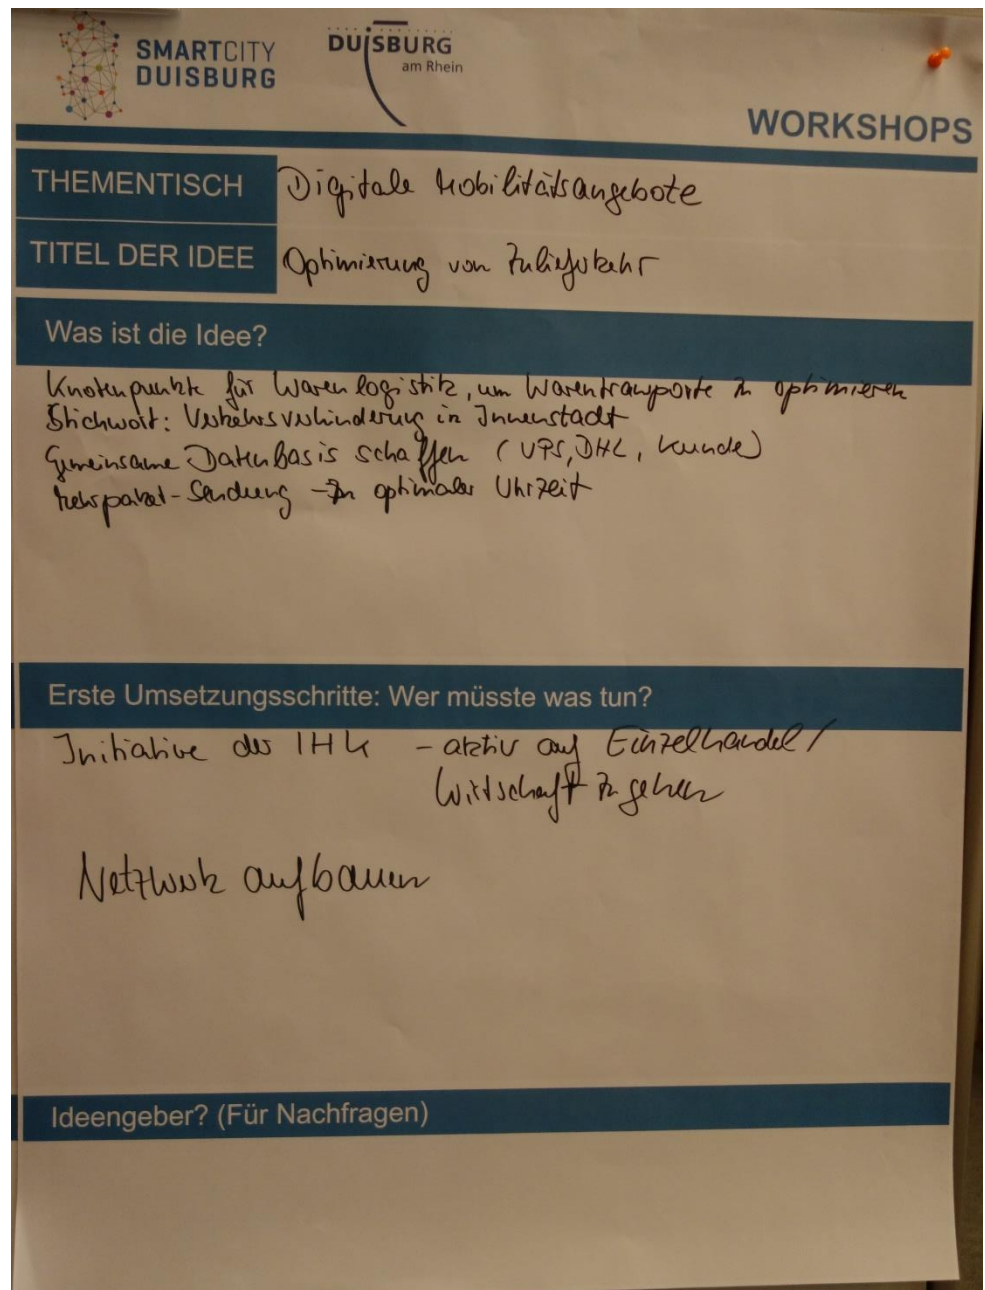 SMARTCITY
DUISBURG
DUISBURG
am Rhein
WORKSHOPS
THEMENTISCH Digitale Mobilitätsangebote
TITEL DER IDEE Optimierung von Zulieferkehr
Was ist die Idee?
Knotenpunkte für Warenlogistik, um Warentransporte zu optimieren
Stichwort: Verkehrsverhinderung in Innenstadt
Gemeinsame Datenbasis schaffen (UPS, DHL, Kunde)
-Sendung → zu optimaler Uhrzeit
Erste Umsetzungsschritte: Wer müsste was tun?
Initiative der IHK - aktiv auf Einzelhandel /
Wirtschaft zu gehen
Netzwerk aufbauen
Ideengeber? (Für Nachfragen)